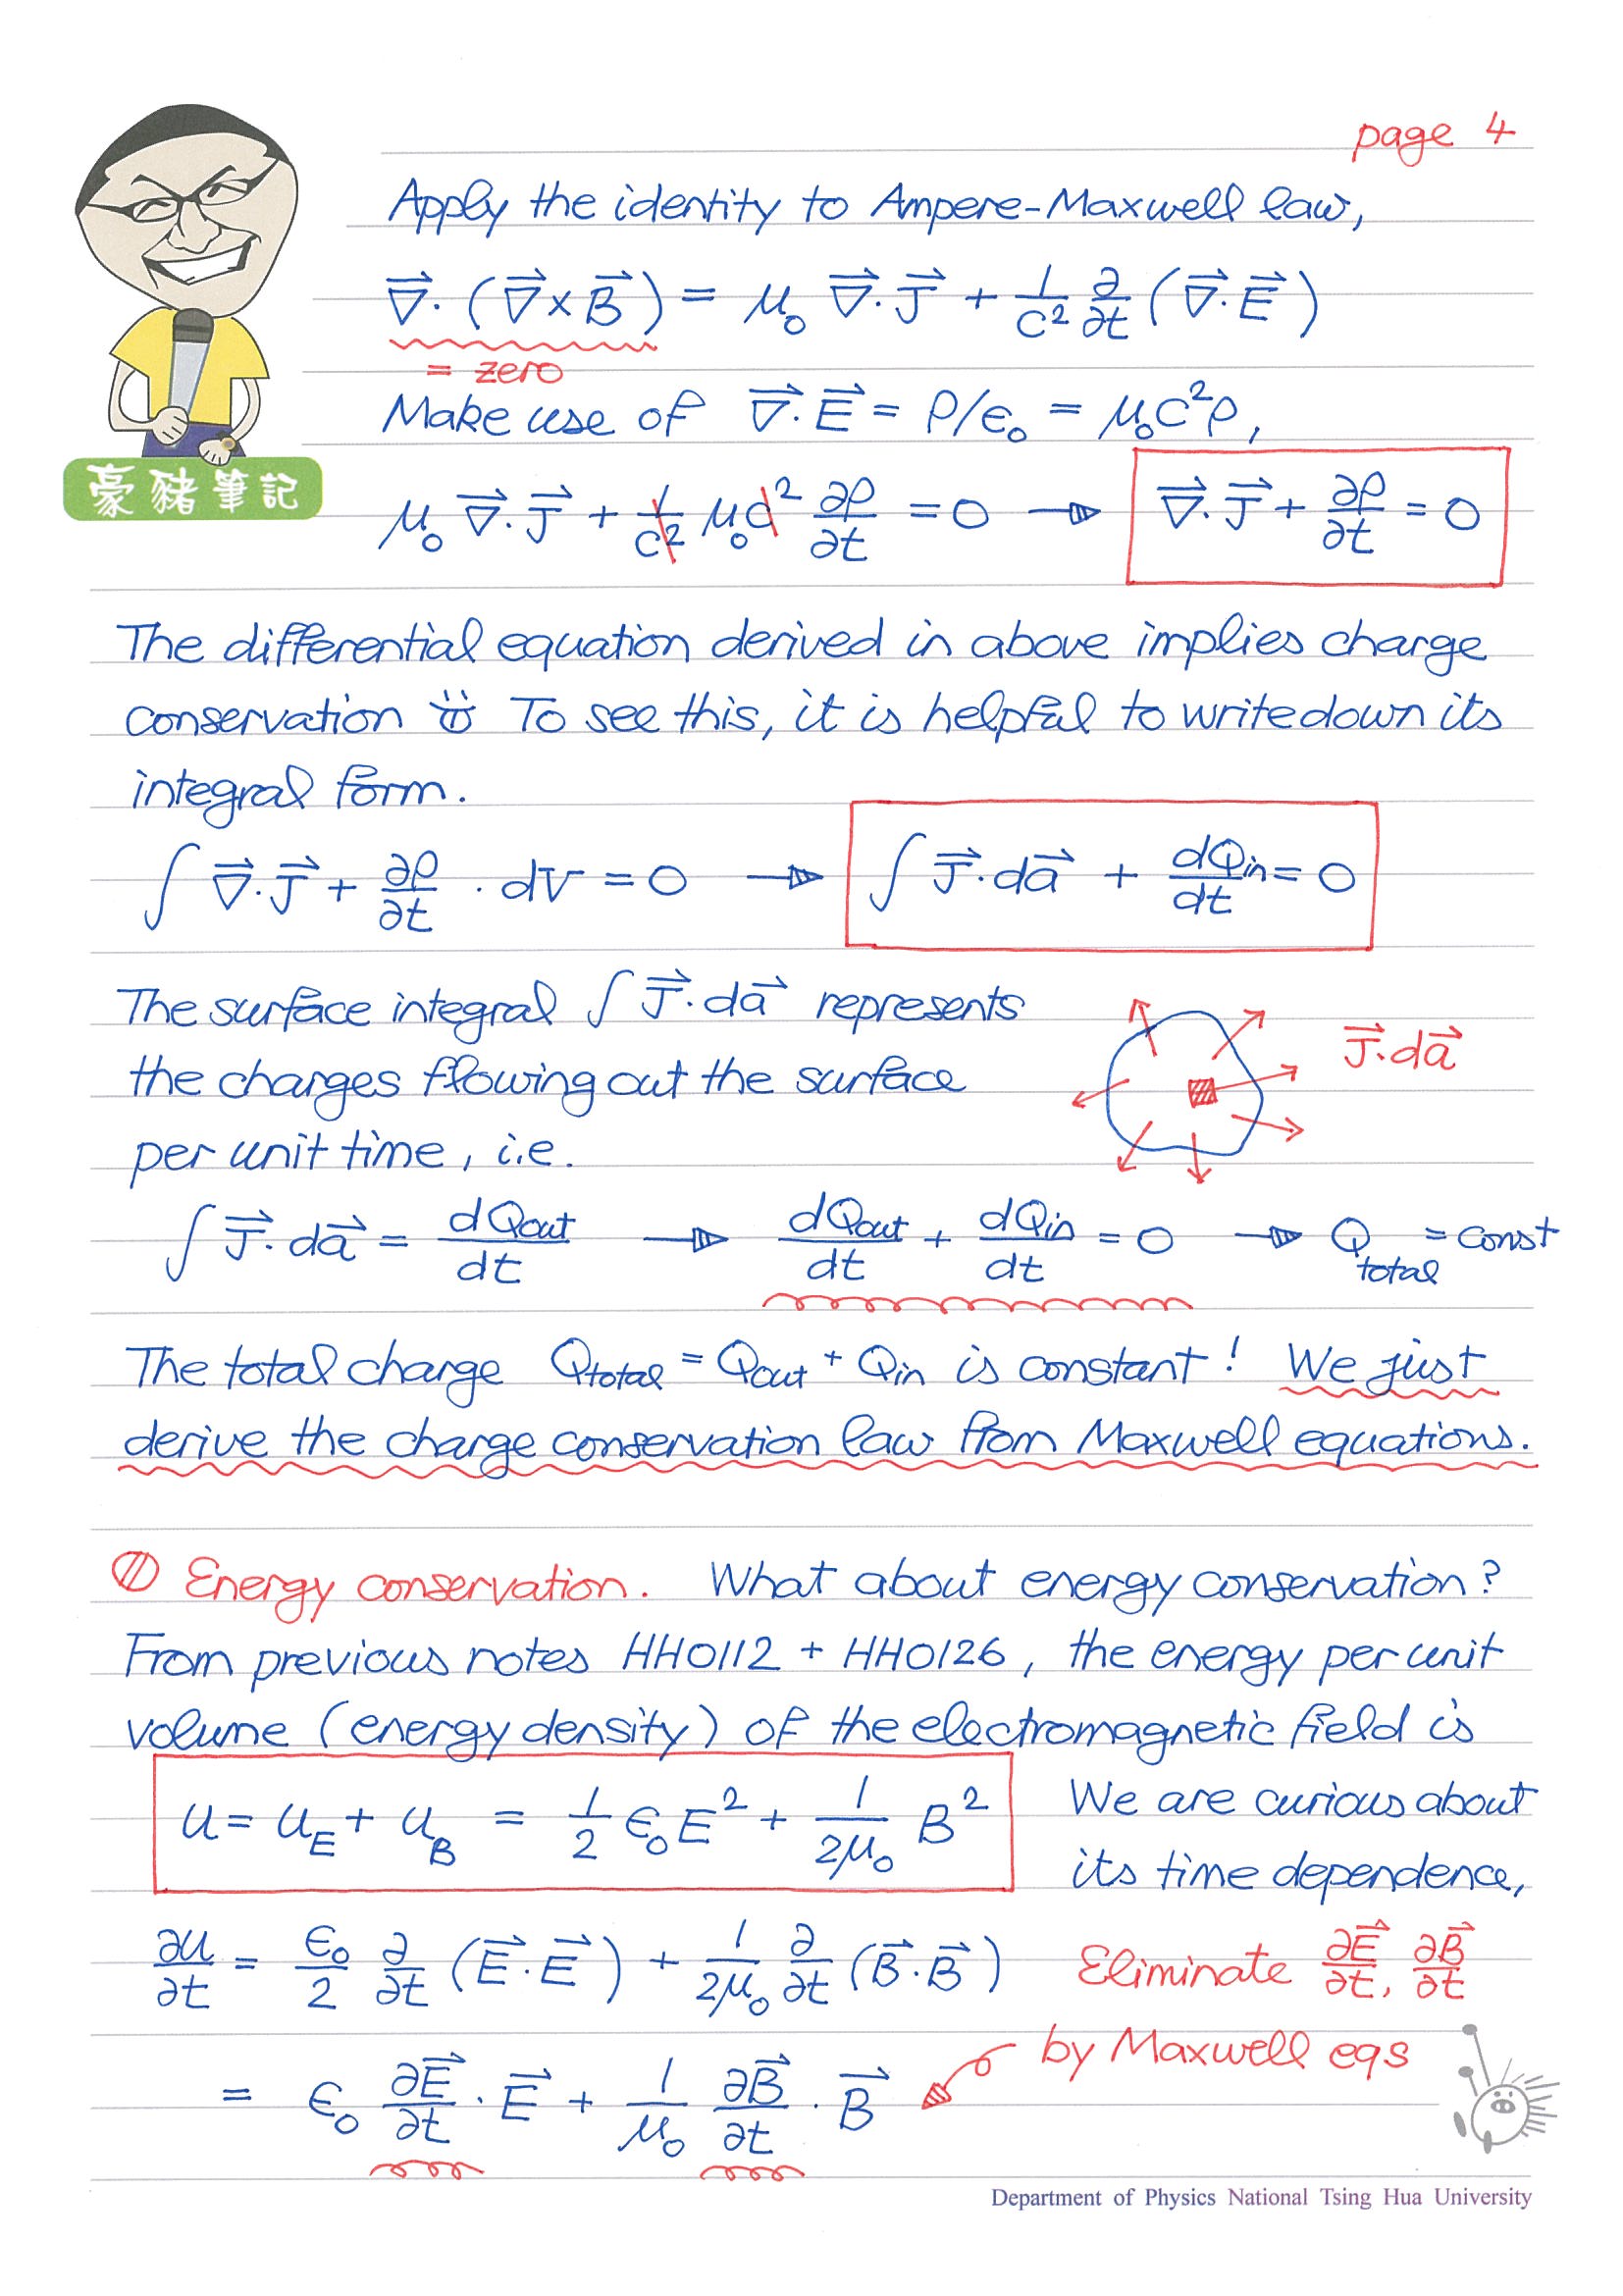 page 4
Apply the identity to Ampere-Maxwell law,
∇⃗·(∇⃗×B⃗) = μ₀ ∇⃗·J⃗ + 1/c² ∂/∂t (∇⃗·E⃗)
= zero
Make use of ∇⃗·E⃗ = ρ/ϵ₀ = μ₀c²ρ,
豪豬筆記
μ₀ ∇⃗·J⃗ + 1/c² μ₀c² ∂ρ/∂t = 0 → ∇⃗·J⃗ + ∂ρ/∂t = 0
The differential equation derived in above implies charge
conservation To see this, it is helpful to write down its
integral form.
∫ ∇⃗·J⃗ + ∂ρ/∂t · dV = 0 → ∫ J⃗·da⃗ + dQin/dt = 0
The surface integral ∫ J⃗·da⃗ represents
J⃗·da⃗
the charges flowing out the surface
per unit time, i.e.
∫ J⃗·da⃗ = dQout/dt → dQout/dt + dQin/dt = 0 → Qtotal = const
The total charge Qtotal = Qout + Qin is constant! We just
derive the charge conservation law from Maxwell equations.
Energy conservation. What about energy conservation?
From previous notes HH0112 + HH0126, the energy per unit
volume (energy density) of the electromagnetic field is
u = u_E + u_B = 1/2 ϵ₀E² + 1/2μ₀ B²
We are curious about
its time dependence,
∂u/∂t = ϵ₀/2 ∂/∂t (E⃗·E⃗) + 1/2μ₀ ∂/∂t (B⃗·B⃗)
Eliminate ∂E⃗/∂t, ∂B⃗/∂t
by Maxwell eqs
= ϵ₀ ∂E⃗/∂t · E⃗ + 1/μ₀ ∂B⃗/∂t · B⃗
Department of Physics National Tsing Hua University